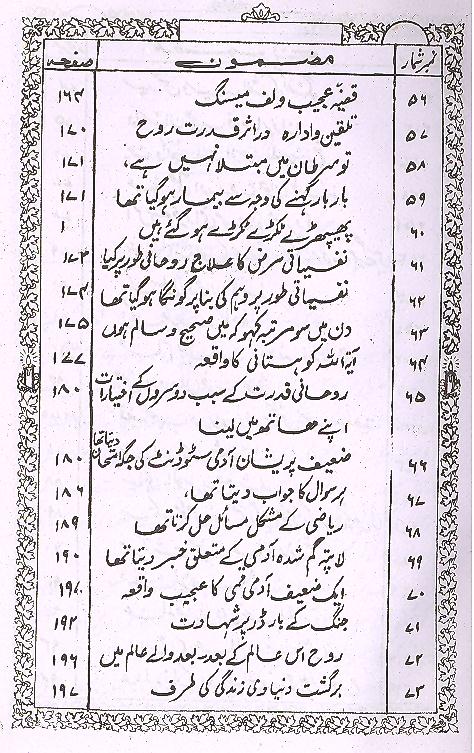 نمبر شمار مضمون صفحہ
۵۶ قصّہ عجیب ولف میسنگ ۱۶۴
۵۷ تلقین و ادارہ در اثر قدرت روح ۱۷۰
۵۸ تو سرطان میں مبتلا نہیں ہے، ۱۷۱
۵۹ بار بار کہنے کی وجہ سے بیمار ہو گیا تھا ۱۷۱
۶۰ پھیپھڑے ٹکڑے ٹکڑے ہو گئے ہیں ۱
۶۱ نفسیاتی مرض کا علاج روحانی طور پر کیا ۱۷۳
۶۲ نفسیاتی طور پر وہم کی بنا پر گونگا ہو گیا تھا ۱۷۴
۶۳ دن میں سو مرتبہ کہو کہ میں صحیح و سالم ہوں ۱۷۵
۶۴ آیۃ اللہ کوہستانی کا واقعہ ۱۷۷
۶۵ روحانی قدرت کے سبب دوسروں کے اختیارات ۱۸۰
اپنے ھاتھ میں لینا
۶۶ ضعیف پریشان آدمی سٹوڈنٹ کی جگہ امتحان دیتا تھا ۱۸۰
۶۷ ہر سوال کا جواب دیتا تھا، ۱۸۶
۶۸ ریاضی کے مشکل مسائل حل کرتا تھا ۱۸۹
۶۹ لاپتہ گم شدہ آدمی کے متعلق خبر دیتا تھا ۱۹۰
۷۰ ایک ضعیف آدمی قمی کا عجیب واقعہ ۱۹۰
۷۱ جنگ کے بارڈر پر شہادت ۱۹۲
۷۲ روح اس عالم کے بعد۔ بعد والے عالم میں ۱۹۶
۷۳ برگشت دنیاوی زندگی کی طرف ۱۹۷